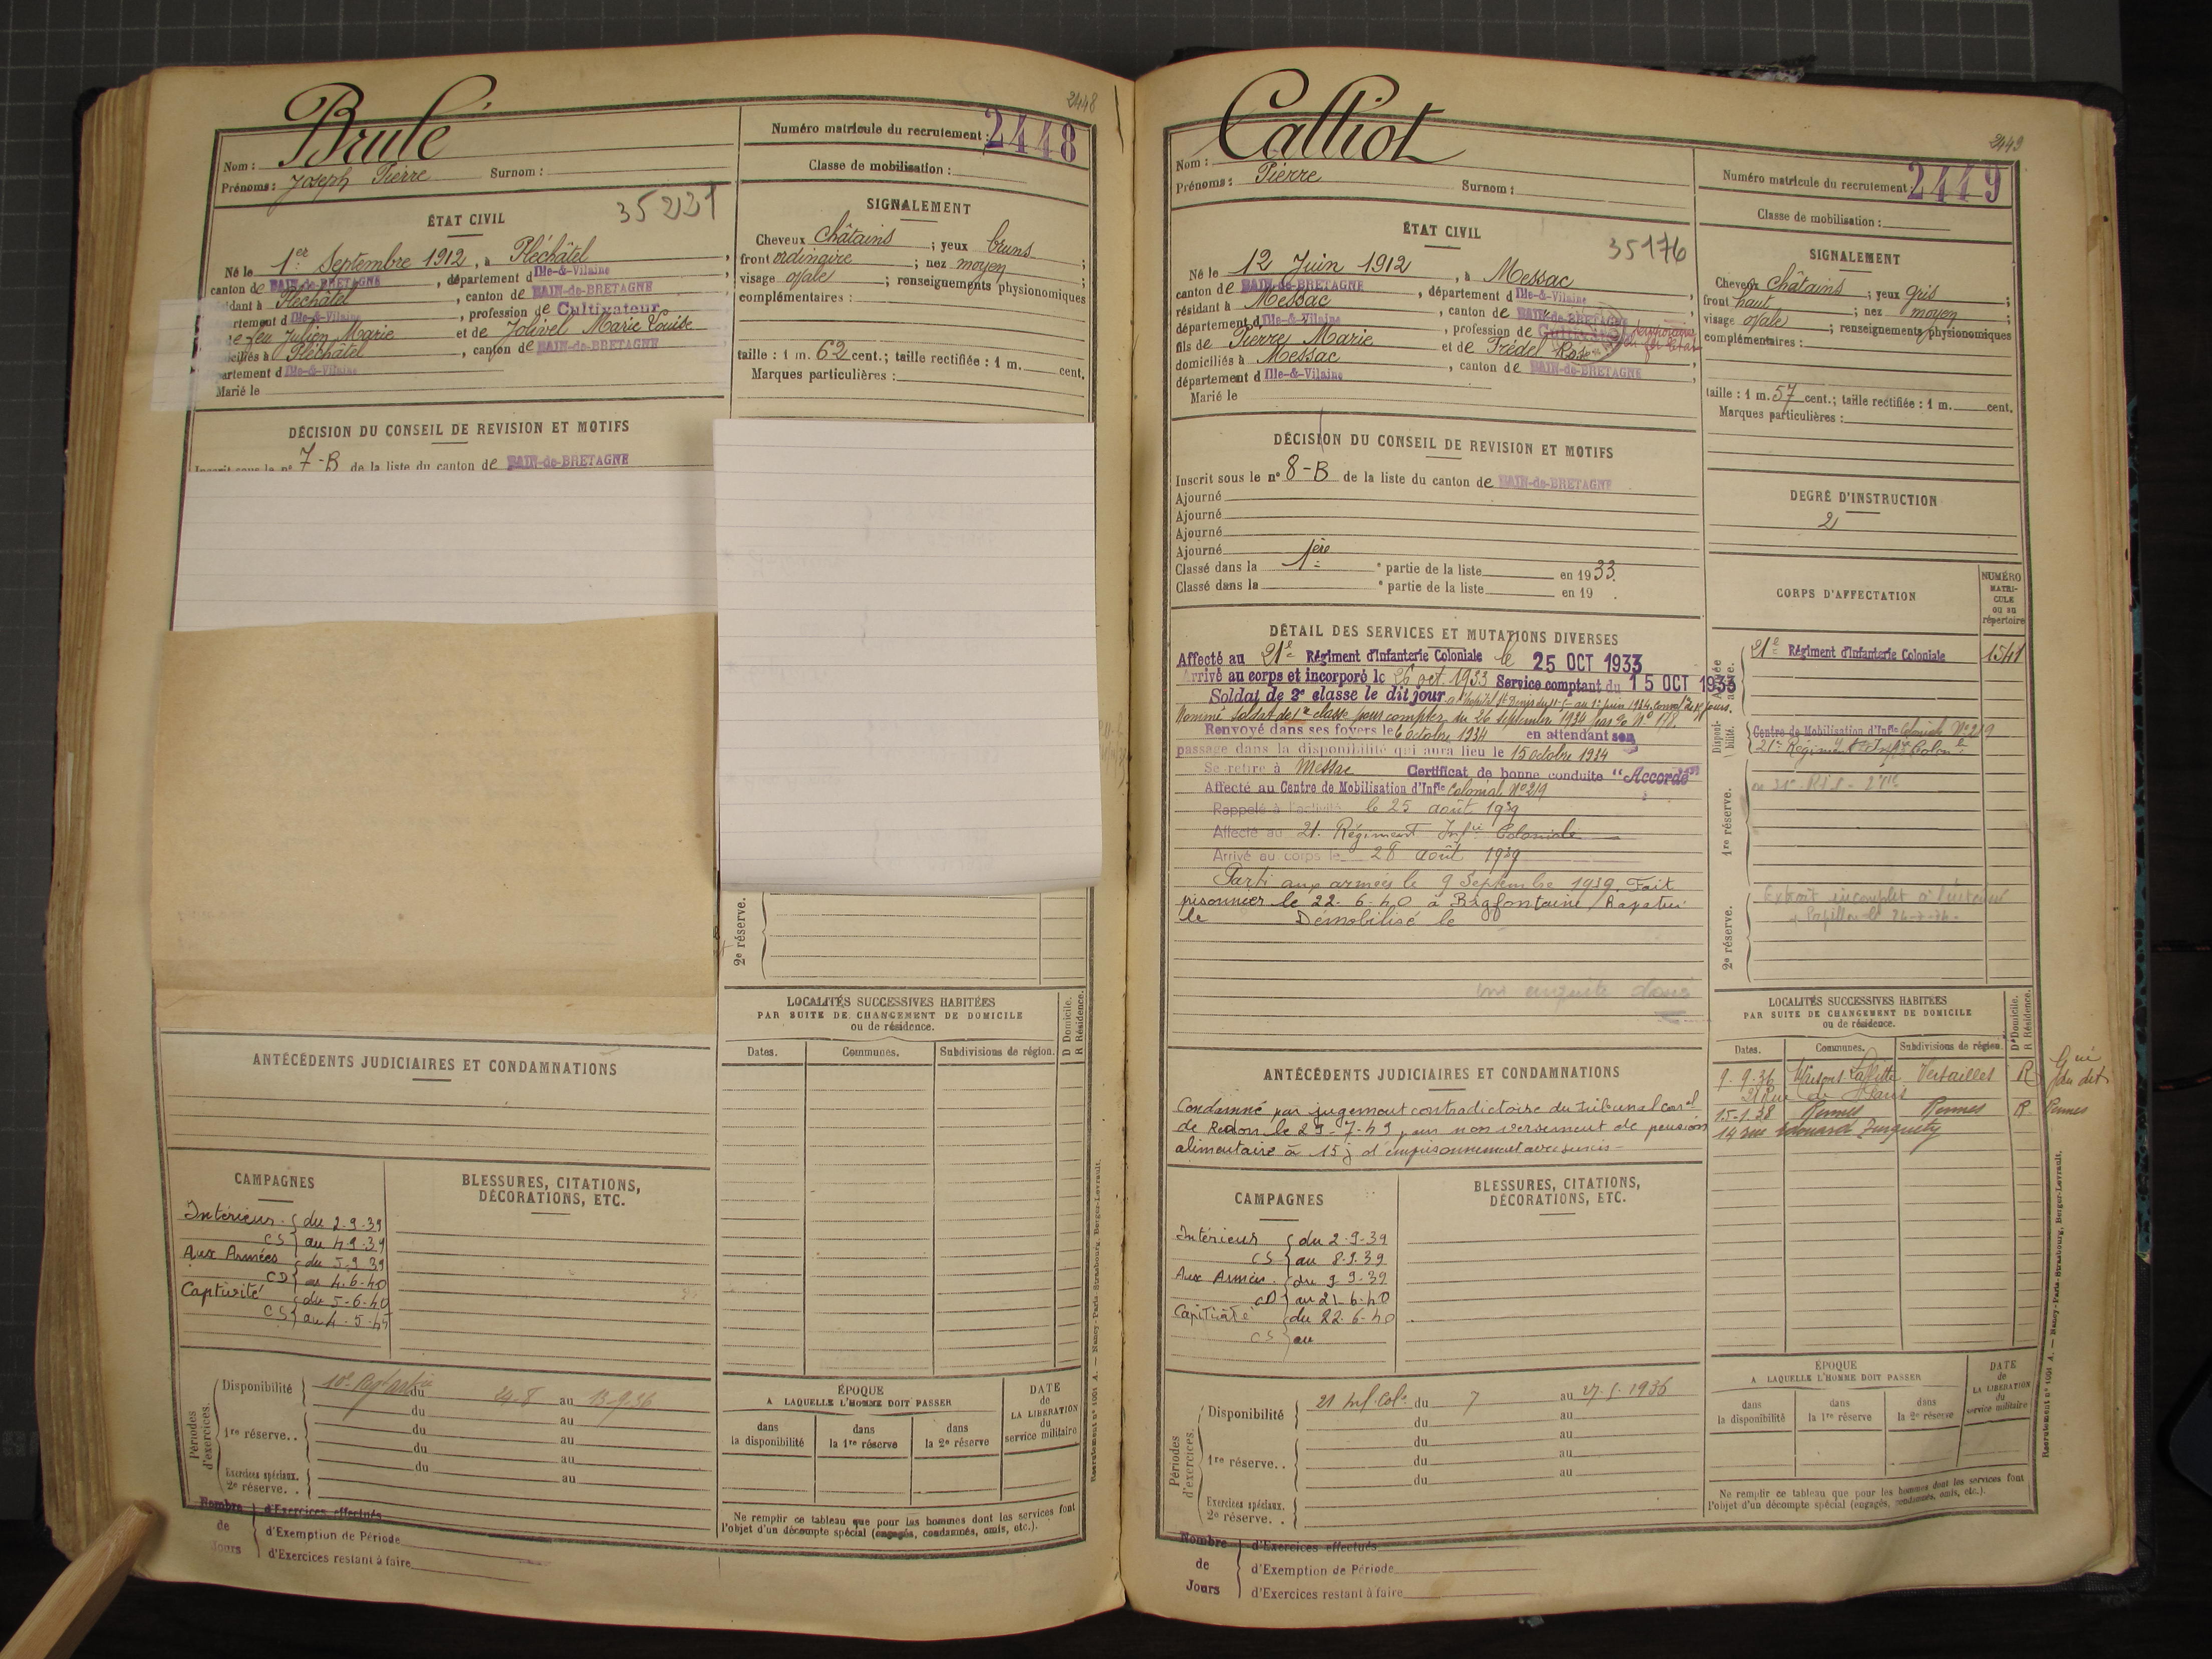 2448
Brulé
Nom :
Prénoms : Joseph Pierre Surnom :
Numéro matricule du recrutement : 2448
Classe de mobilisation :
ÉTAT CIVIL
35221
Né le 1er Septembre 1912, à Pléchâtel,
canton de BAIN-de-BRETAGNE, département d Ille-&-Vilaine,
dant à Pléchâtel, canton de BAIN-de-BRETAGNE
rtement d Ille-&-Vilaine, profession de Cultivateur
de feu Julien Marie et de Jolivel Marie Louise
ciliés à Pléchâtel, canton de BAIN-de-BRETAGNE
artement d Ille-&-Vilaine
Marié le
SIGNALEMENT
Cheveux châtains ; yeux bruns ;
front ordinaire ; nez moyen ;
visage ovale ; renseignements physionomiques
complémentaires :
taille : 1 m. 62 cent. ; taille rectifiée : 1 m. cent.
Marques particulières :
DÉCISION DU CONSEIL DE REVISION ET MOTIFS
Inscrit sous le n° 7-B de la liste du canton de BAIN-de-BRETAGNE
2e réserve.
LOCALITÉS SUCCESSIVES HABITÉES
PAR SUITE DE CHANGEMENT DE DOMICILE
ou de résidence.
D Domicile.
R Résidence.
Dates. Communes. Subdivisions de région.
ANTÉCÉDENTS JUDICIAIRES ET CONDAMNATIONS
CAMPAGNES
Intérieur du 2-9-39
CS au 4-9-39
Aux Armées du 5-9-39
CD au 4-6-40
Captivité du 5-6-40
CS au 4-5-45
BLESSURES, CITATIONS,
DÉCORATIONS, ETC.
Périodes d'exercices.
Disponibilité du 24-8 au 13-9-36
du au
1re réserve. . du au
du au
du au
Exercices spéciaux.
2e réserve. .
Nombre de Jours
d'Exercices effectués
d'Exemption de Période
d'Exercices restant à faire
ÉPOQUE
A LAQUELLE L'HOMME DOIT PASSER
dans la disponibilité
dans la 1re réserve
dans la 2e réserve
DATE de LA LIBÉRATION du service militaire
Ne remplir ce tableau que pour les hommes dont les services font
l'objet d'un décompte spécial (engagés, condamnés, omis, etc.).
Recrutement n° 1001 A. — Nancy-Paris-Strasbourg, Berger-Levrault.
2449
Calliot
Nom :
Prénoms : Pierre Surnom :
Numéro matricule du recrutement 2449
Classe de mobilisation :
ÉTAT CIVIL
35176
Né le 12 Juin 1912, à Messac,
canton de BAIN-de-BRETAGNE, département d Ille-&-Vilaine,
résidant à Messac, canton de BAIN-de-BRETAGNE
département d Ille-&-Vilaine, profession de
fils de Pierre Marie et de Frédel Rose
domiciliés à Messac, canton de BAIN-de-BRETAGNE,
département d Ille-&-Vilaine
Marié le
SIGNALEMENT
Cheveux châtains ; yeux gris ;
front haut ; nez moyen ;
visage ovale ; renseignements physionomiques
complémentaires :
taille : 1 m. 57 cent. ; taille rectifiée : 1 m. cent.
Marques particulières :
DÉCISION DU CONSEIL DE REVISION ET MOTIFS
Inscrit sous le n° 8-B de la liste du canton de BAIN-de-BRETAGNE
Ajourné
Ajourné
Ajourné
Ajourné
Classé dans la 1ère e partie de la liste en 1933.
Classé dans la e partie de la liste en 19 .
DEGRÉ D'INSTRUCTION
2
CORPS D'AFFECTATION
NUMÉRO MATRICULE OU au répertoire
DÉTAIL DES SERVICES ET MUTATIONS DIVERSES
Affecté au 21e Régiment d'Infanterie Coloniale le 25 OCT 1933
Arrivé au corps et incorporé le 26 oct. 1933 Service comptant du 15 OCT 1933
Soldat de 2e classe le dit jour
Nommé soldat de 1re classe pour compter du 26 septembre 1934
Renvoyé dans ses foyers le 6 octobre 1934 en attendant son
passage dans la disponibilité qui aura lieu le 15 octobre 1934
Se retire à Messac Certificat de bonne conduite "Accordé"
Affecté au Centre de Mobilisation d'Infie Colonial N° 219
Rappelé à l'activité le 25 août 1939
Affecté au 21. Régiment Infie Coloniale
Arrivé au corps le 28 août 1939
Parti aux armées le 9 Septembre 1939. Fait
prisonnier le 22-6-40 à Rapatrié
le Démobilisé le
Armée active.
21e Régiment d'Infanterie Coloniale 1541
Disponibilité.
Centre de Mobilisation d'Infie Coloniale N° 219
21e Régiment d'Infie Colon le
1re réserve.
2e réserve.
Extrait incomplet à l'intéressé
LOCALITÉS SUCCESSIVES HABITÉES
PAR SUITE DE CHANGEMENT DE DOMICILE
ou de résidence.
D Domicile.
R Résidence.
Dates. Communes. Subdivisions de région.
9-9-36 Maisons Laffitte Versailles R
21 Rue de Paris
15-1-38 Rennes Rennes R Rennes
14 rue Edouard Turquety
ANTÉCÉDENTS JUDICIAIRES ET CONDAMNATIONS
Condamné par jugement contradictoire du tribunal corel
de Redon le 29-7-49 pour non versement de pension
alimentaire à 15 j d'emprisonnement avec sursis
CAMPAGNES
Intérieur du 2-9-39
CS au 8-9-39
Aux Armées du 9-9-39
CD au 21-6-40
Captivité du 22-6-40
CS au
BLESSURES, CITATIONS,
DÉCORATIONS, ETC.
Périodes d'exercices.
Disponibilité 21 Inf. Cole du 7 au 27-5-1936
du au
1re réserve. . du au
du au
du au
Exercices spéciaux.
2e réserve. .
Nombre de Jours
d'Exercices effectués
d'Exemption de Période
d'Exercices restant à faire
ÉPOQUE
A LAQUELLE L'HOMME DOIT PASSER
dans la disponibilité
dans la 1re réserve
dans la 2e réserve
DATE de LA LIBÉRATION du service militaire
Ne remplir ce tableau que pour les hommes dont les services font
l'objet d'un décompte spécial (engagés, condamnés, omis, etc.).
Recrutement n° 1001 A. — Nancy-Paris-Strasbourg, Berger-Levrault.